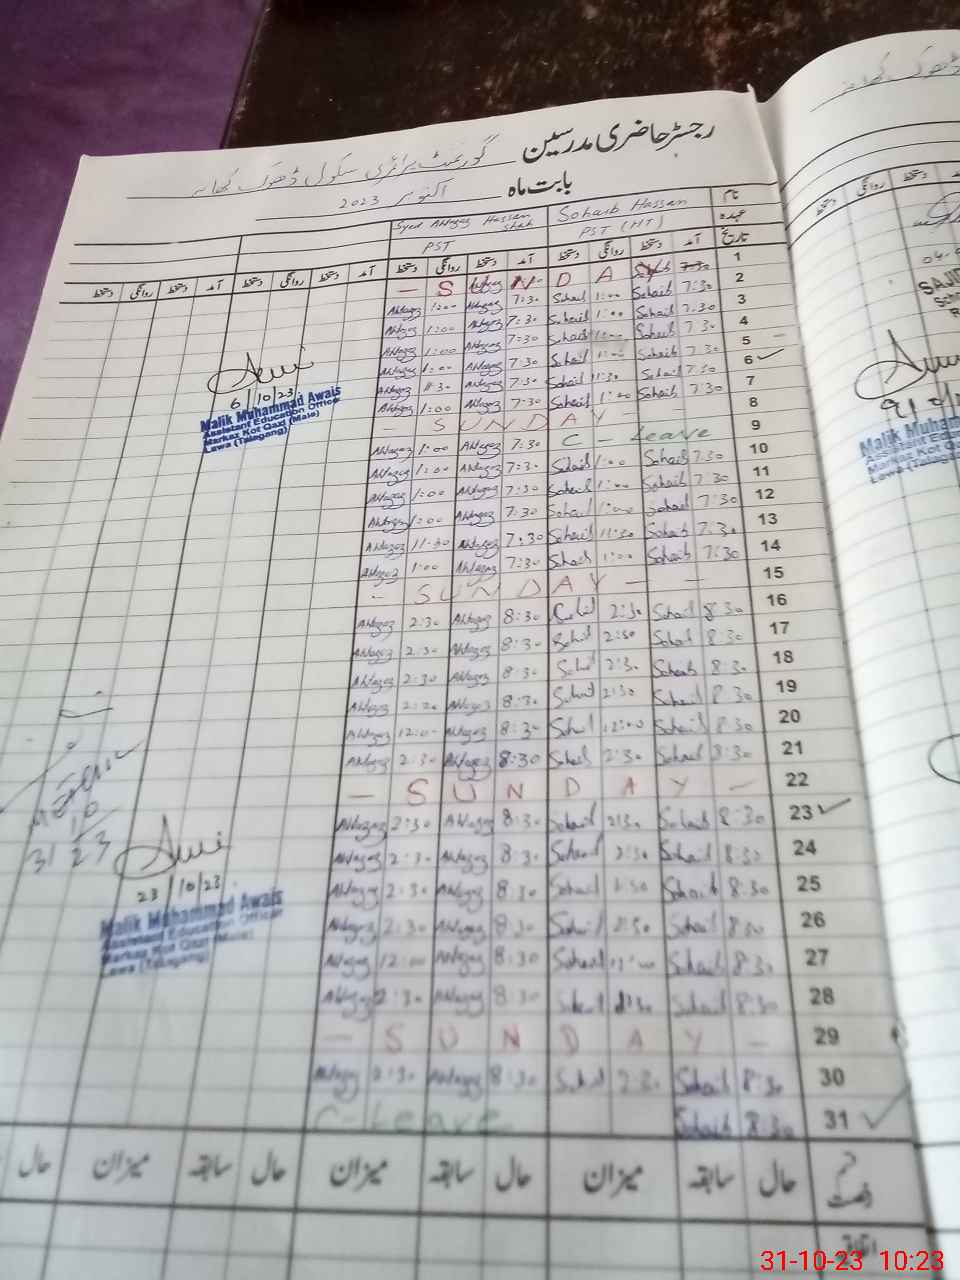 رجسٹر حاضری مدرسین گورنمنٹ پرائمری سکول ڈھوک
بابت ماہ اکتوبر 2023
نام Sohaib Hassan Syed Ahtazaz Hassan Shah
عہدہ PST (HT) PST
تاریخ آمد دستخط روانگی دستخط آمد دستخط روانگی دستخط آمد دستخط روانگی دستخط آمد دستخط روانگی دستخط
— S U N D A Y 7:30 1
Ahtazaz 1:00 Ahtazaz 7:30 Sohaib 1:00 Sohaib 7:30 2
Ahtazaz 1:00 Ahtazaz 7:30 Sohaib 1:00 Sohaib 7:30 3
Ahtazaz 1:00 Ahtazaz 7:30 Sohaib Sohaib 7:30 4
Ahtazaz 1:00 Ahtazaz 7:30 Sohaib 1:00 Sohaib 7:30 5 —
Ahtazaz 11:30 Ahtazaz 7:30 Sohaib 11:30 Sohaib 7:30 6 ✓
Ahtazaz 1:00 Ahtazaz 7:30 Sohaib 1:00 Sohaib 7:30 7
— S U N D A Y — 8
Ahtazaz 1:00 Ahtazaz 7:30 C - Leave 9
Ahtazaz 1:00 Ahtazaz 7:30 Sohaib 1:00 Sohaib 7:30 10
Ahtazaz 1:00 Ahtazaz 7:30 Sohaib 1:00 Sohaib 7:30 11
Ahtazaz 1:00 Ahtazaz 7:30 Sohaib 1:00 Sohaib 7:30 12
Ahtazaz 11:30 Ahtazaz 7:30 Sohaib 11:30 Sohaib 7:30 13
Ahtazaz 1:00 Ahtazaz 7:30 Sohaib 1:00 Sohaib 7:30 14
- S U N D A Y — — 15
Ahtazaz 2:30 Ahtazaz 8:30 Sohaib 2:30 Sohaib 8:30 16
Ahtazaz 2:30 Ahtazaz 8:30 Sohaib 2:30 Sohaib 8:30 17
Ahtazaz 2:30 Ahtazaz 8:30 Sohaib 2:30 Sohaib 8:30 18
Ahtazaz 2:30 Ahtazaz 8:30 Sohaib 2:30 Sohaib 8:30 19
Ahtazaz 12:00 Ahtazaz 8:30 Sohaib 12:00 Sohaib 8:30 20
Ahtazaz 2:30 Ahtazaz 8:30 Sohaib 2:30 Sohaib 8:30 21
— S U N D A Y — 22
Ahtazaz 2:30 Ahtazaz 8:30 Sohaib 2:30 Sohaib 8:30 23 ✓
Ahtazaz 2:30 Ahtazaz 8:30 Sohaib 2:30 Sohaib 8:30 24
Ahtazaz 2:30 Ahtazaz 8:30 Sohaib 2:30 Sohaib 8:30 25
Ahtazaz 2:30 Ahtazaz 8:30 Sohaib 2:30 Sohaib 8:30 26
Ahtazaz 12:00 Ahtazaz 8:30 Sohaib 12:00 Sohaib 8:30 27
Ahtazaz 2:30 Ahtazaz 8:30 Sohaib 2:30 Sohaib 8:30 28
— S U N D A Y — 29
Ahtazaz 2:30 Ahtazaz 8:30 Sohaib 2:30 Sohaib 8:30 30
C-Leave Sohaib 8:30 31 ✓
قسم رخصت حال سابقہ میزان حال سابقہ میزان حال سابقہ میزان حال
اتفاقیہ
6/10/23
Malik Muhammad Awais
Assistant Education Officer
Markaz Kot Qazi (Male)
Lawa (Talagang)
31 10 23
23/10/23
Malik Muhammad Awais
Assistant Education Officer
Markaz Kot Qazi (Male)
Lawa (Talagang)
ڈھوک
روانگی دستخط
Malik Muham
Assistant Educ
Markaz Kot
Lawa (Tal
31-10-23 10:23